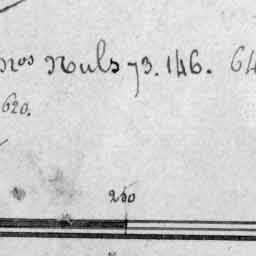 nos Nuls 73.146. 64
620.
250